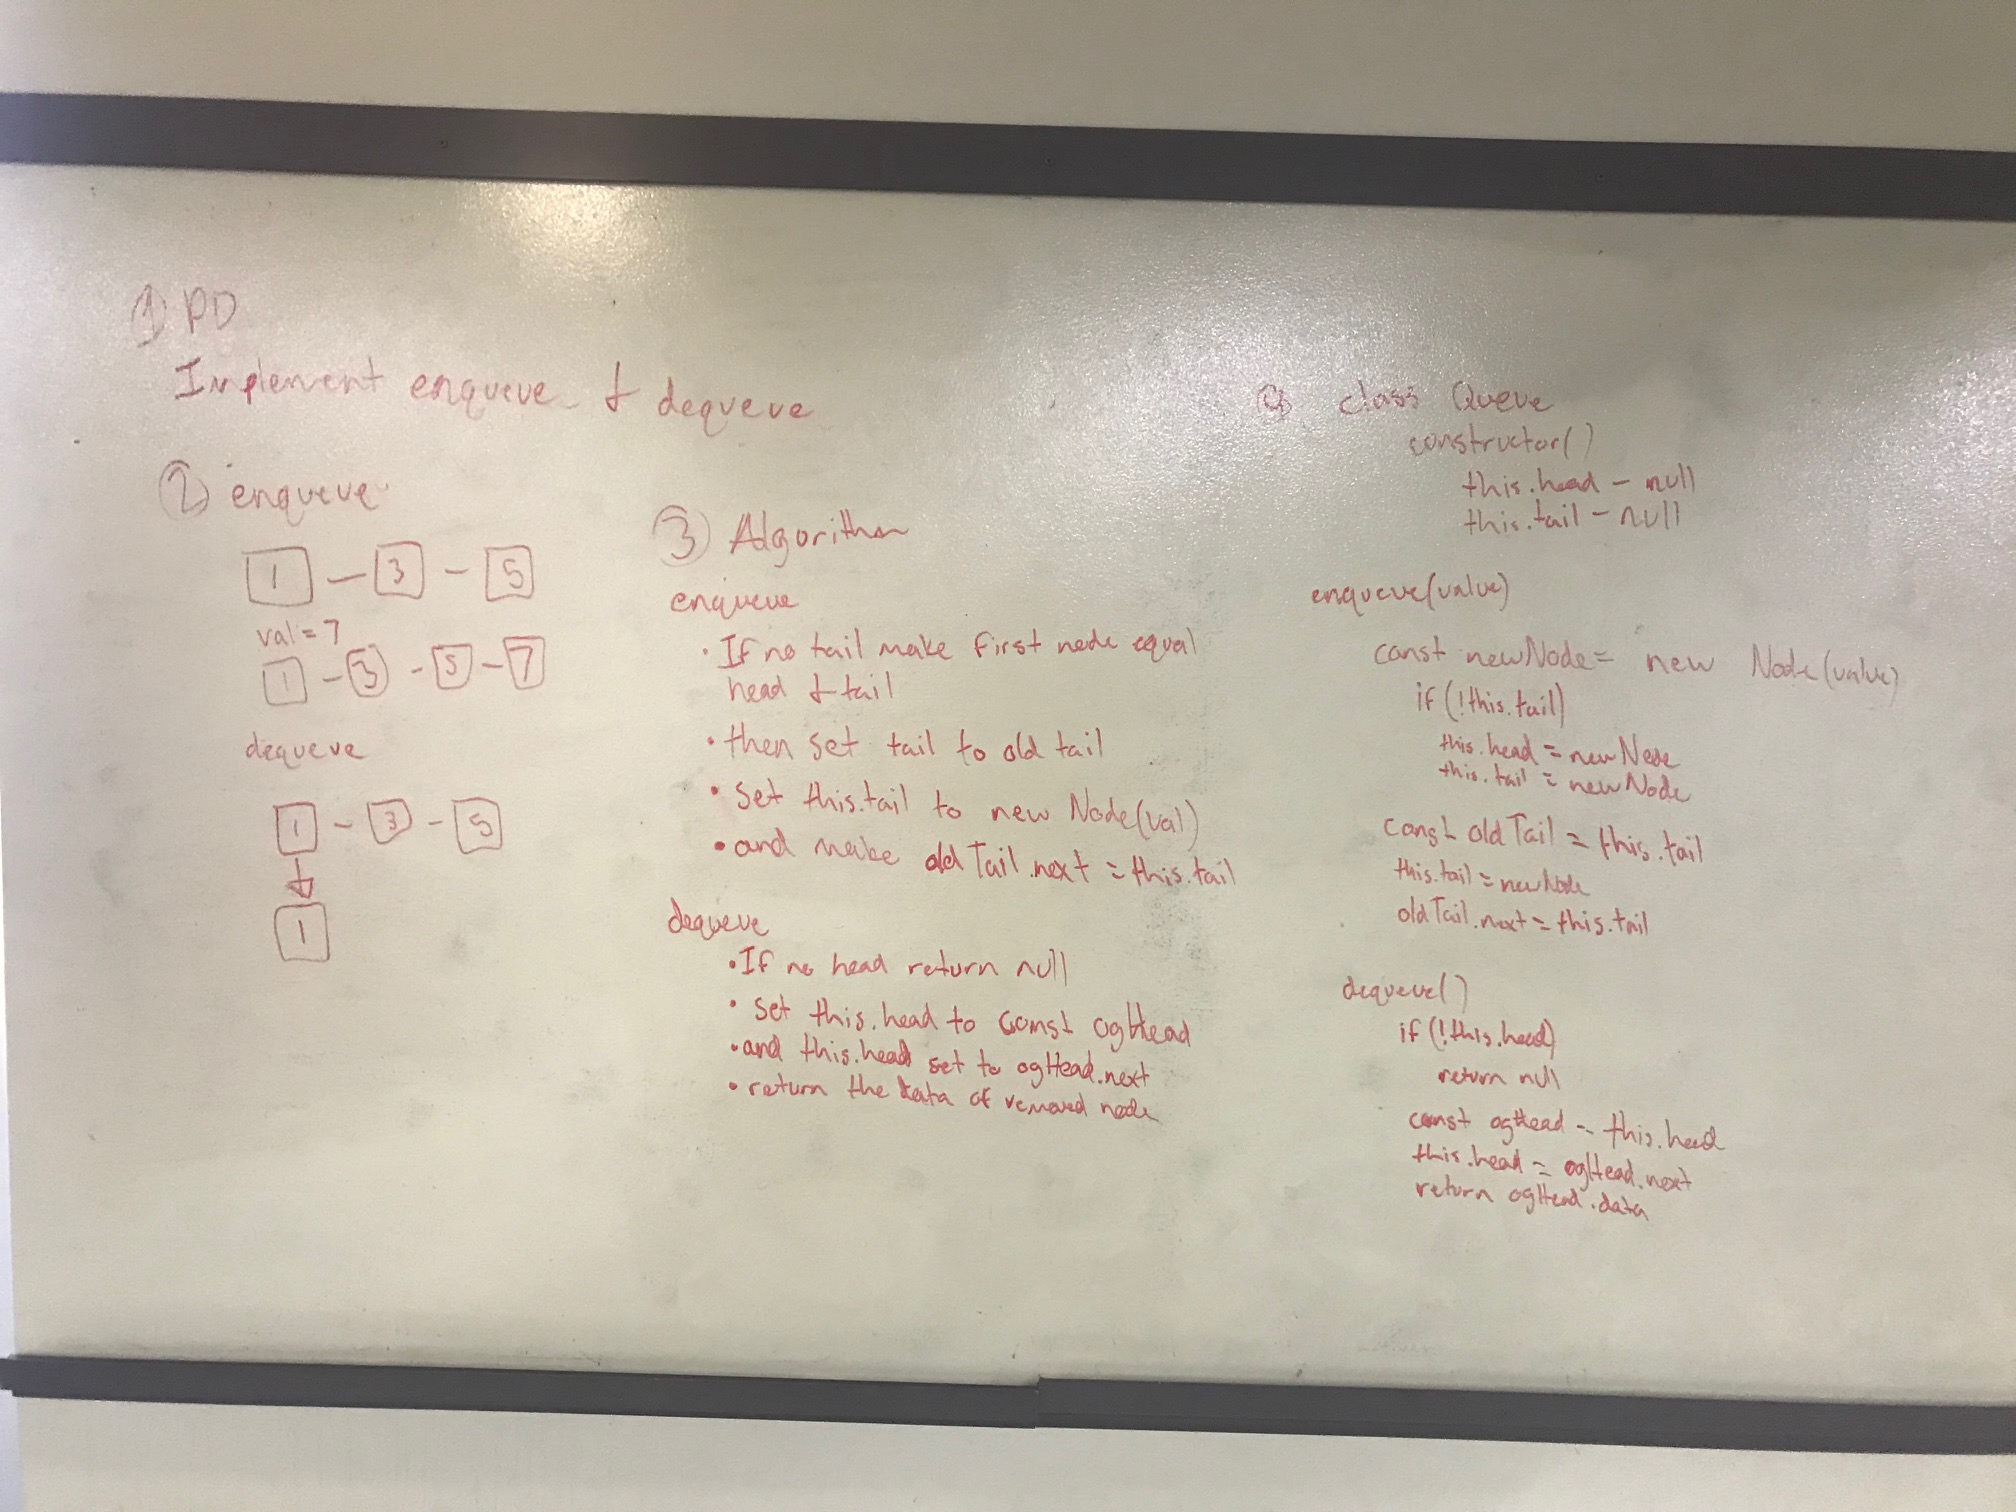 ① PD
Implement enqueue & dequeue
② enqueue
1 - 3 - 5
val = 7
1 - 3 - 5 - 7
dequeue
1 - 3 - 5
1
③ Algorithm
enqueue
• If no tail make first node equal
head & tail
• then set tail to old tail
• set this.tail to new Node(val)
• and make oldTail.next = this.tail
dequeue
• If no head return null
• set this.head to const ogHead
• and this.head set to ogHead.next
• return the data of removed node
class Queue
constructor()
this.head - null
this.tail - null
enqueue(value)
const newNode = new Node(value)
if (!this.tail)
this.head = newNode
this.tail = newNode
const oldTail = this.tail
this.tail = newNode
oldTail.next = this.tail
dequeue()
if (!this.head)
return null
const ogHead = this.head
this.head = ogHead.next
return ogHead.data